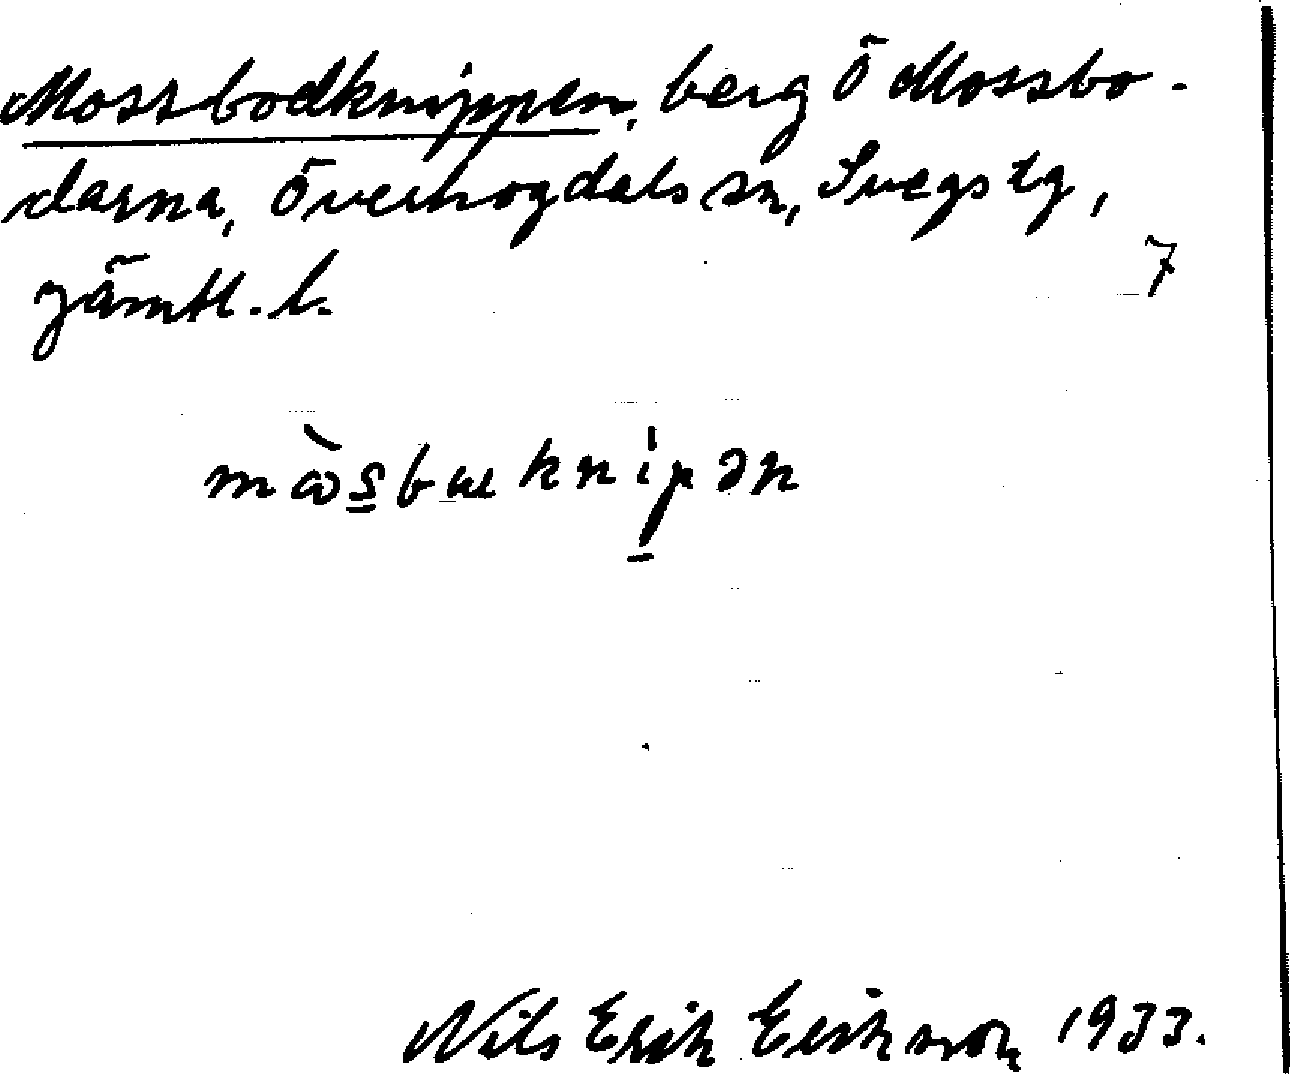 Mossbodknippen, berg Ö Mossbo-
darna, Överhogdals sn, Svegs tg,
Jämtl. l.
7
mɷ̀s̲bɯknip̲ən
Nils Erik Eriksson 1933.